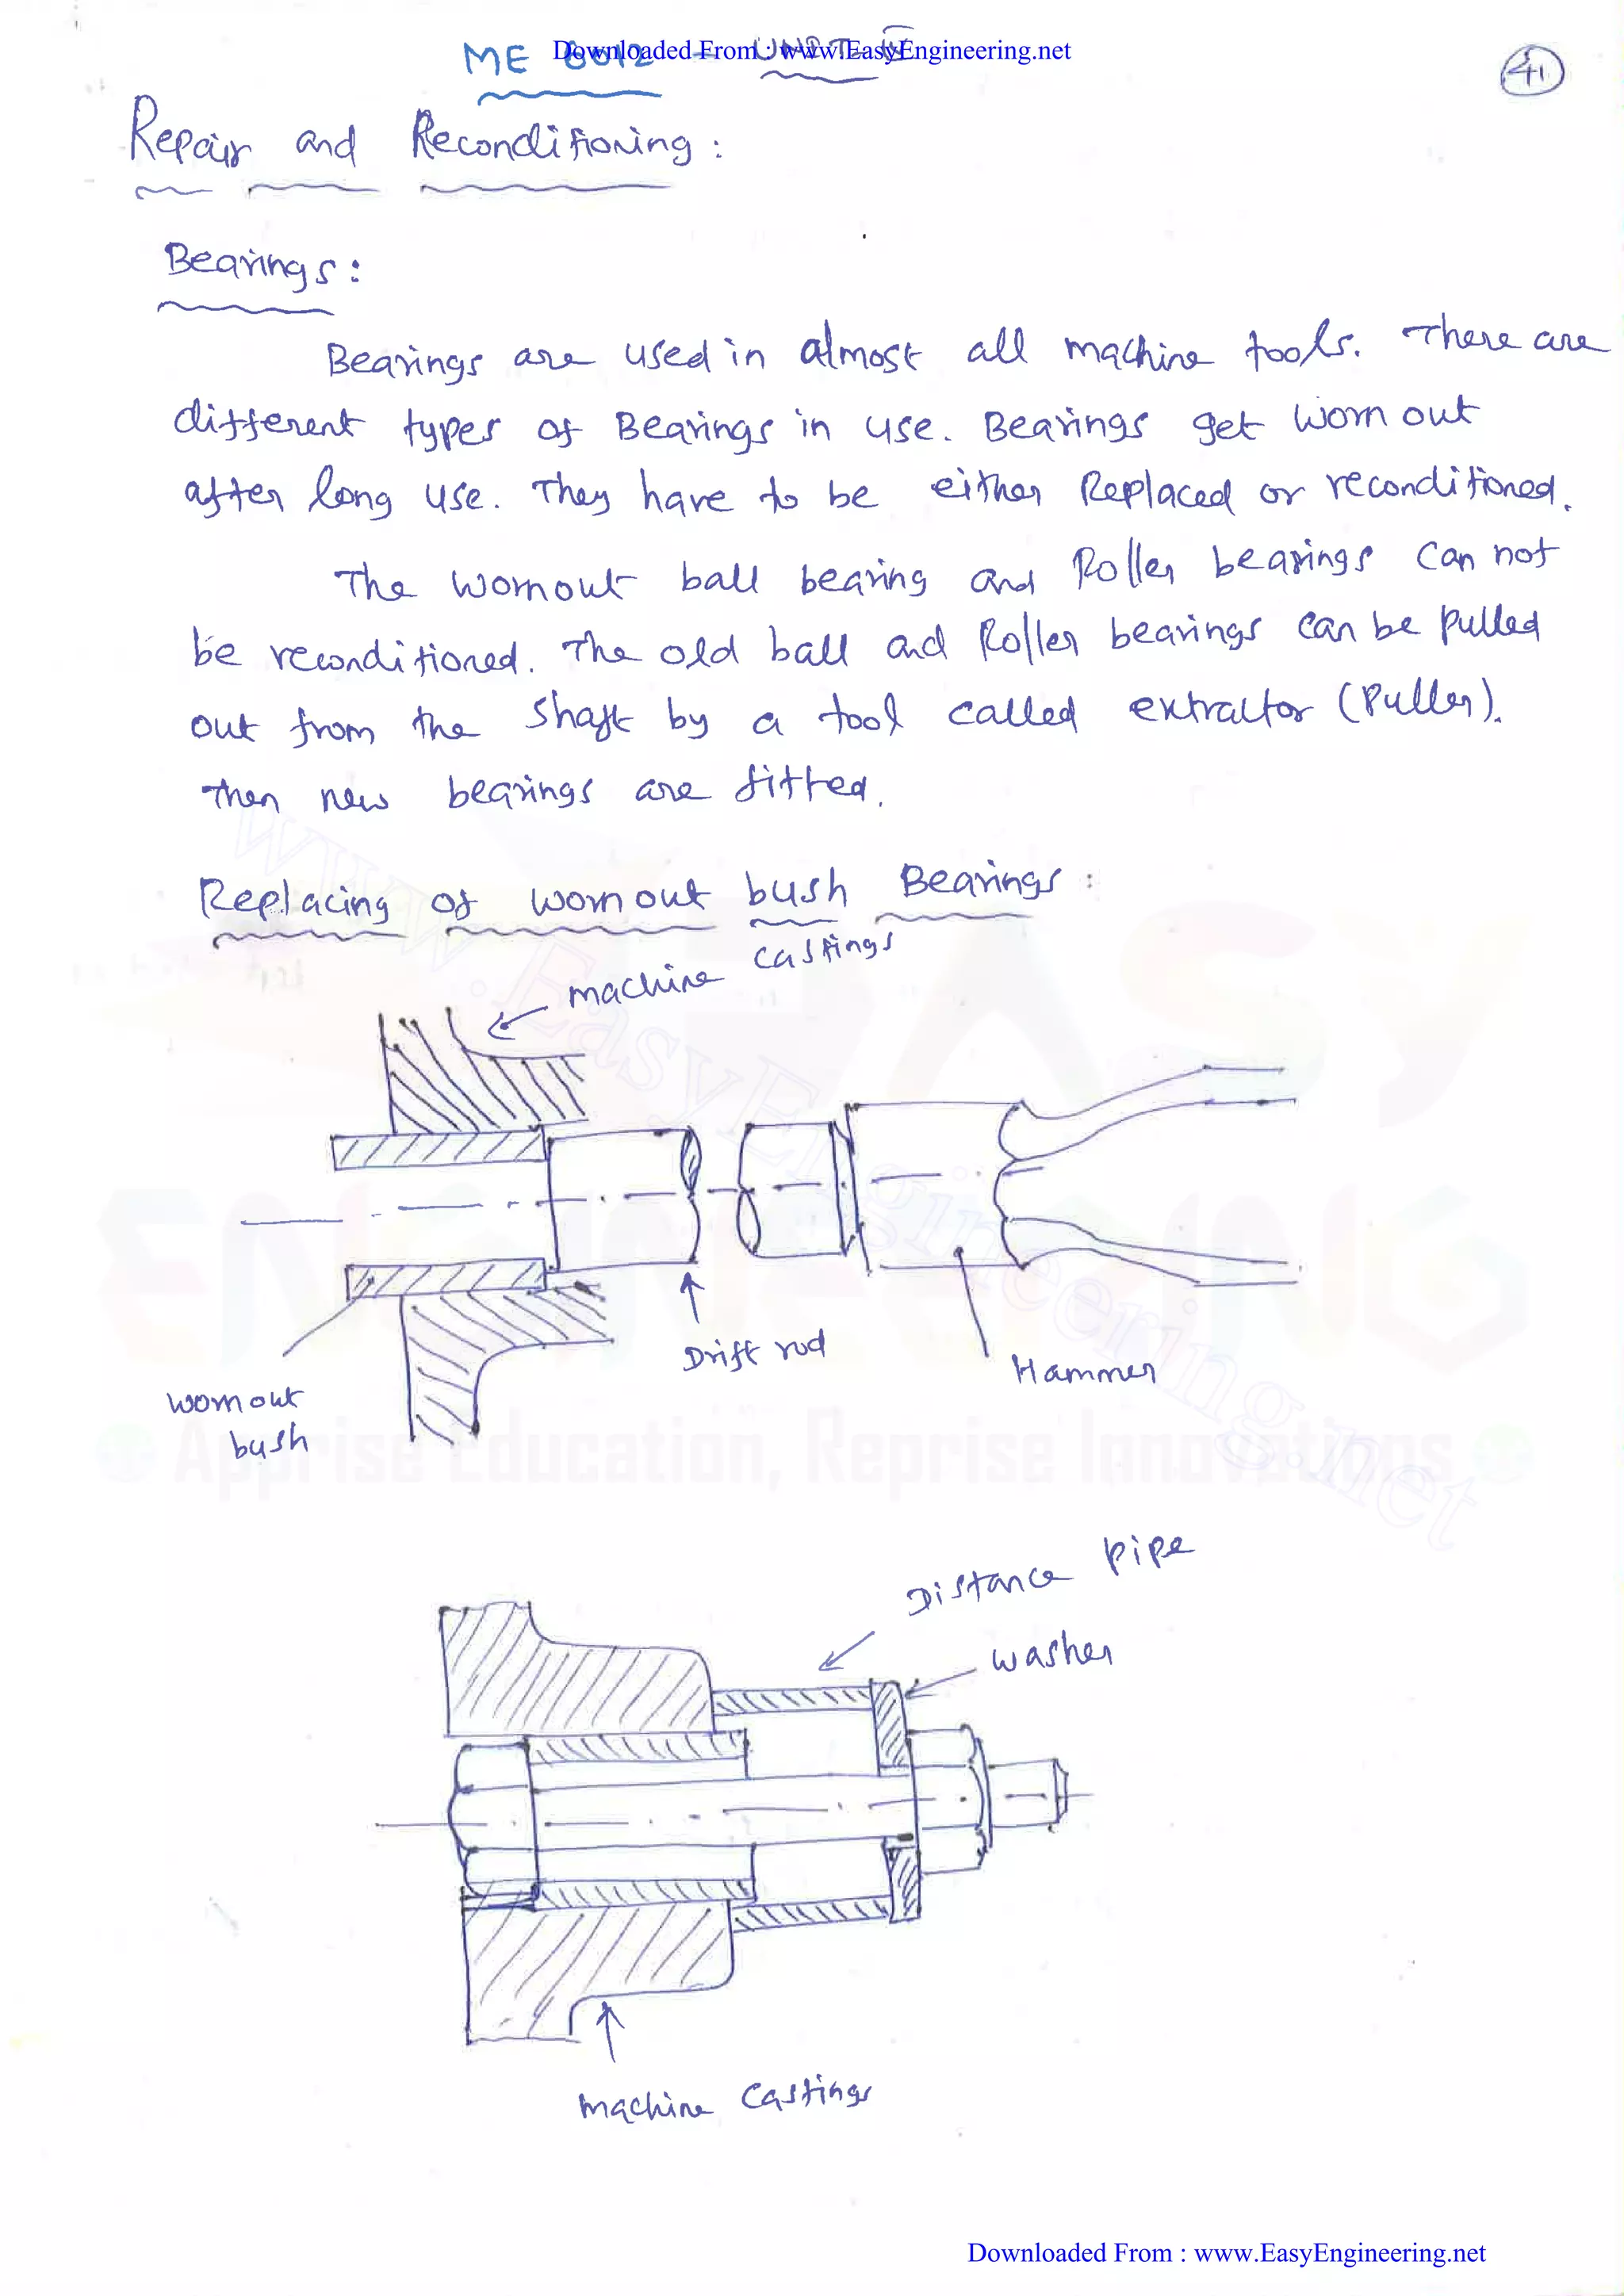 Downloaded From : www.EasyEngineering.net
ME 8012 - UNIT-IV
41
Repair and Reconditioning :
Bearings :
Bearings are used in almost all machine tools. There are
different types of Bearings in use. Bearings get worn out
after long use. They have to be either Replaced or reconditioned.
The wornout ball bearing and Roller bearings can not
be reconditioned. The old ball and Roller bearings can be pulled
out from the shaft by a tool called extractor (Puller).
Then new bearings are fitted.
Replacing of worn out bush Bearings :
machine castings
Drift rod
Hammer
worn out
bush
Distance pipe
washer
machine castings
www.EasyEngineering.net
EASY
ENGINEERING
Apprise Education, Reprise Innovations
Downloaded From : www.EasyEngineering.net